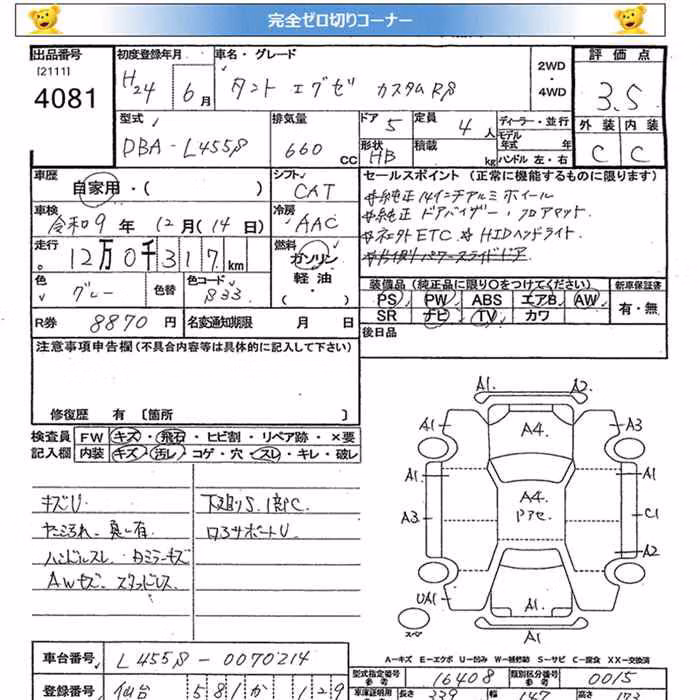 完全ゼロ切りコーナー
出品番号
[2111]
4081
初度登録年月
H24 6月
車名・グレード
タント エグゼ カスタムRS
2WD
・
4WD
評価点
3.5
外装 内装
C C
型式
DBA-L455S
排気量
660 CC
ドア 5
形状 HB
定員 4人
積載 kg
ディーラー・並行
モデル年式 年
ハンドル 左・右
車歴
自家用・( )
シフト
CAT
車検
令和9年 12月(14日)
冷房
AAC
走行
12万0千317km
燃料
ガソリン
軽油
・( )
色
グレー
色替
色コード
S33
R券 8870円
名変通知期限 月 日
セールスポイント(正常に機能するものに限ります)
#純正14インチアルミホイール
#純正 ドアバイザー・フロアマット
#ETC # HIDヘッドライト
装備品(純正品に限り○をつけてください)
PS PW ABS エアB AW
SR ナビ TV カワ
新車保証書
有・無
後日品
注意事項申告欄(不具合内容等は具体的に記入して下さい)
修復歴 有 [箇所 ]
検査員 FW キズ・飛石・ヒビ割・リペア跡・×要
記入欄 内装 キズ・汚レ・コゲ・穴・スレ・キレ・破レ
キズU
下廻りS.1部C
ロアサポートU
ハンドルスレ
AWキズ スタッドレス
A1 A2
A1 A4 A3
A1 A1
A3 A4 C1
A2
UA1 A1
スペア
A1
A-キズ E-エクボ U-凹み W-補修跡 S-サビ C-腐食 XX-交換済
車台番号 L455S-0070214
登録番号 仙台 581 か 129
型式指定番号 参考 16408
類別区分番号 参考 0015
車庫証明用 長さ 339 幅 147 高さ 173